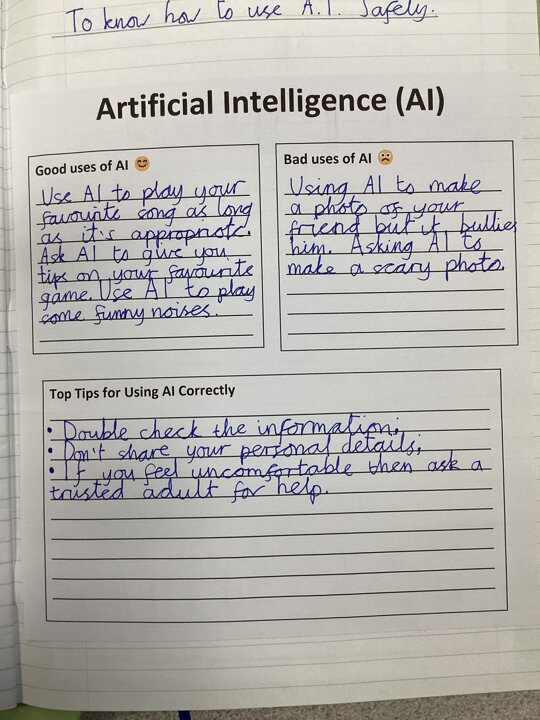 To know how to use A.I. Safely.
Artificial Intelligence (AI)
Good uses of AI 😊
Use AI to play your
favourite song as long
as it's appropriate.
Ask AI to give you
tips on your favourite
game. Use AI to play
some funny noises.
Bad uses of AI ☹️
Using AI to make
a photo of your
friend but it bullies
him. Asking AI to
make a scary photo.
Top Tips for Using AI Correctly
• Double check the information,
• Don't share your personal details,
• If you feel uncomfortable then ask a
trusted adult for help.